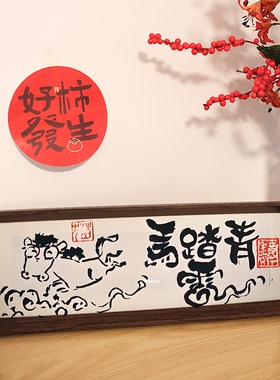 好柿
發生
馬踏青
雲